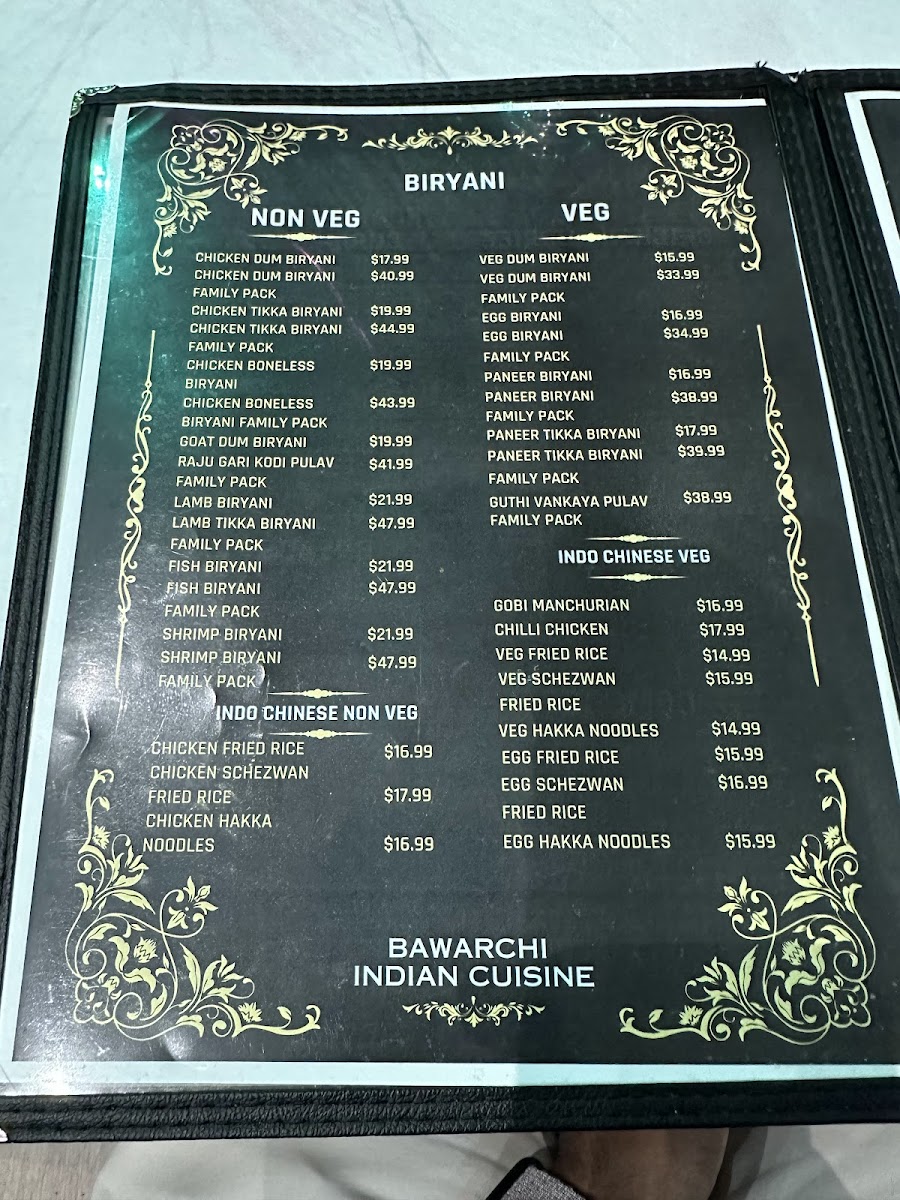 BIRYANI
NON VEG
CHICKEN DUM BIRYANI $17.99
CHICKEN DUM BIRYANI $40.99
FAMILY PACK
CHICKEN TIKKA BIRYANI $19.99
CHICKEN TIKKA BIRYANI $44.99
FAMILY PACK
CHICKEN BONELESS $19.99
BIRYANI
CHICKEN BONELESS $43.99
BIRYANI FAMILY PACK
GOAT DUM BIRYANI $19.99
RAJU GARI KODI PULAV $41.99
FAMILY PACK
LAMB BIRYANI $21.99
LAMB TIKKA BIRYANI $47.99
FAMILY PACK
FISH BIRYANI $21.99
FISH BIRYANI $47.99
FAMILY PACK
SHRIMP BIRYANI $21.99
SHRIMP BIRYANI $47.99
FAMILY PACK
INDO CHINESE NON VEG
CHICKEN FRIED RICE $16.99
CHICKEN SCHEZWAN
FRIED RICE $17.99
CHICKEN HAKKA
NOODLES $16.99
VEG
VEG DUM BIRYANI $15.99
VEG DUM BIRYANI $33.99
FAMILY PACK
EGG BIRYANI $16.99
EGG BIRYANI $34.99
FAMILY PACK
PANEER BIRYANI $16.99
PANEER BIRYANI $38.99
FAMILY PACK
PANEER TIKKA BIRYANI $17.99
PANEER TIKKA BIRYANI $39.99
FAMILY PACK
GUTHI VANKAYA PULAV $38.99
FAMILY PACK
INDO CHINESE VEG
GOBI MANCHURIAN $16.99
CHILLI CHICKEN $17.99
VEG FRIED RICE $14.99
VEG SCHEZWAN $15.99
FRIED RICE
VEG HAKKA NOODLES $14.99
EGG FRIED RICE $15.99
EGG SCHEZWAN $16.99
FRIED RICE
EGG HAKKA NOODLES $15.99
BAWARCHI
INDIAN CUISINE